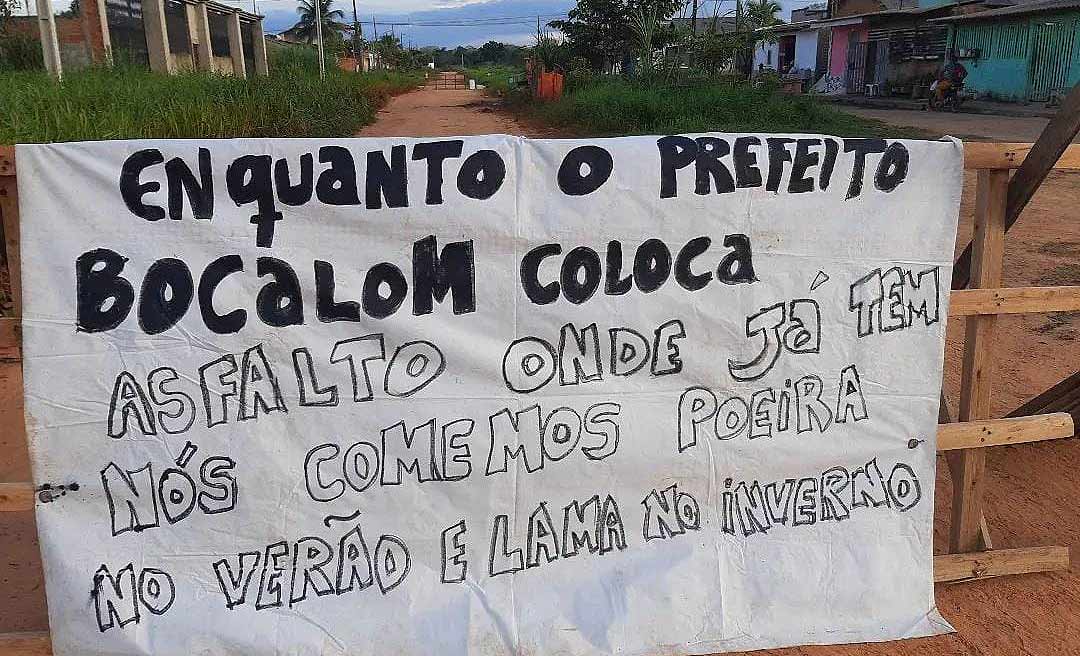 ENquaNTO O PREFEiTO
BOCaLOM COLOCa
ASFALTO ONDE Já TEM
NÓS COMEMOS POEiRA
NO VERÃO E LAMA NO iNVERNO